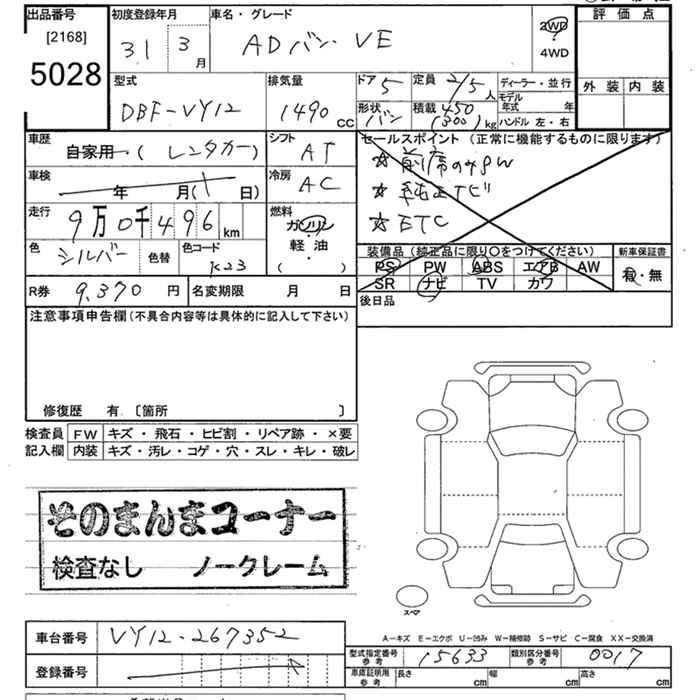 出品番号 初度登録年月 車名・グレード 2WD 評価点
[2168] 31 3月 ADバン VE 4WD
5028
型式 排気量 ドア 5 定員 2/5人 ディーラー・並行 外装 内装
DBF-VY12 1490cc 形状 バン 積載 450(300)kg モデル年式 年
ハンドル 左・右
車歴 シフト セールスポイント (正常に機能するものに限ります)
自家用・(レンタカー) AT ☆前席のみPW
車検 年 月( 日) 冷房 AC ☆純正ナビ
走行 9万0千496km 燃料 ガソリン ☆ETC
軽・油
( ・ )
色 シルバー 色替 色コード K23 装備品 (純正品に限り○をつけてください) 新車保証書
PS PW ABS エアB AW 有・無
R券 9,370円 名変期限 月 日 SR ナビ TV カワ
後日品
注意事項申告欄 (不具合内容等は具体的に記入して下さい)
修復歴 有. 〔箇所 〕
検査員 FW キズ・飛石・ヒビ割・リペア跡・×要
記入欄 内装 キズ・汚レ・コゲ・穴・スレ・キレ・破レ
そのまんまコーナー
検査なし ノークレーム
スペア
A-キズ E-エクボ U-凹み W-補修跡 S-サビ C-腐食 XX-交換済
車台番号 VY12-267352
登録番号
型式指定番号 参考 15633 類別区分番号 参考 0017
車庫証明用 参考 長さ cm 幅 cm 高さ cm